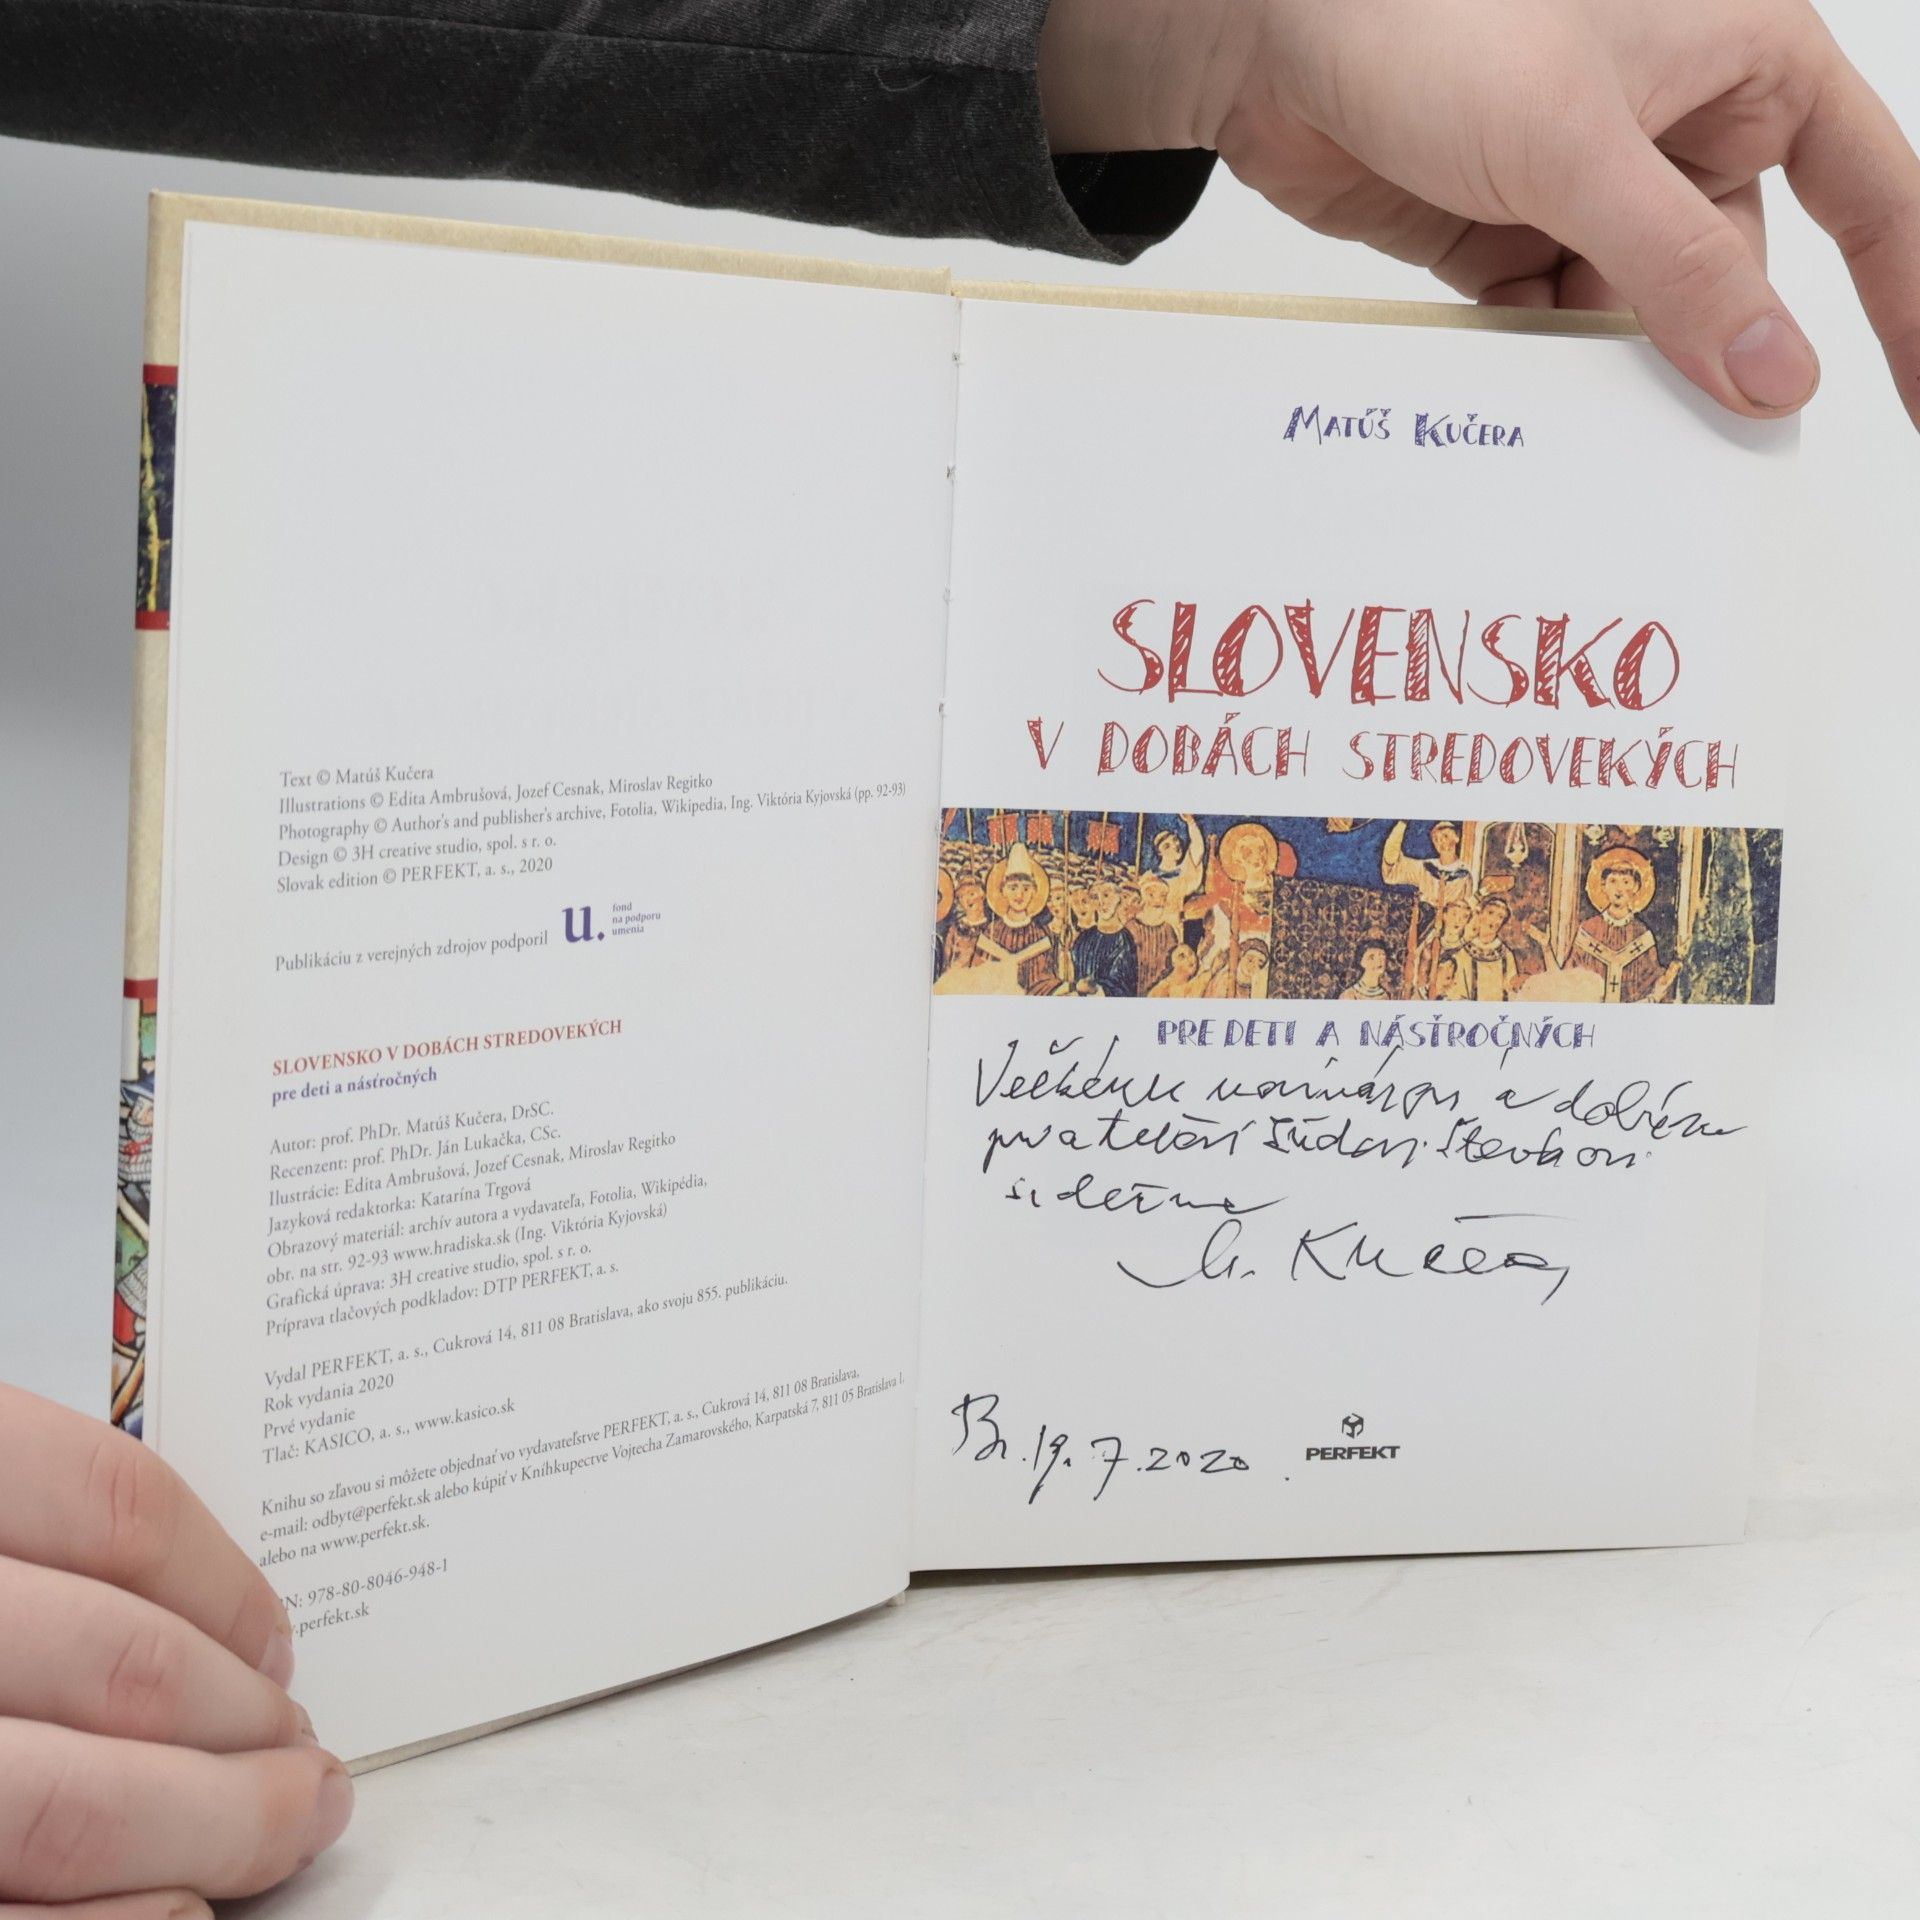 Text © Matúš Kučera
Illustrations © Edita Ambrušová, Jozef Cesnak, Miroslav Regitko
Photography © Author's and publisher's archive, Fotolia, Wikipedia, Ing. Viktória Kyjovská (pp. 92-93)
Design © 3H creative studio, spol. s r. o.
Slovak edition © PERFEKT, a. s., 2020
Publikáciu z verejných zdrojov podporil
u.
fond
na podporu
umenia
SLOVENSKO V DOBÁCH STREDOVEKÝCH
pre deti a násťročných
Autor: prof. PhDr. Matúš Kučera, DrSC.
Recenzent: prof. PhDr. Ján Lukačka, CSc.
Ilustrácie: Edita Ambrušová, Jozef Cesnak, Miroslav Regitko
Jazyková redaktorka: Katarína Trgová
Obrazový materiál: archív autora a vydavateľa, Fotolia, Wikipédia,
obr. na str. 92-93 www.hradiska.sk (Ing. Viktória Kyjovská)
Grafická úprava: 3H creative studio, spol. s r. o.
Príprava tlačových podkladov: DTP PERFEKT, a. s.
Vydal PERFEKT, a. s., Cukrová 14, 811 08 Bratislava, ako svoju 855. publikáciu.
Rok vydania 2020
Prvé vydanie
Tlač: KASICO, a. s., www.kasico.sk
Knihu so zľavou si môžete objednať vo vydavateľstve PERFEKT, a. s., Cukrová 14, 811 08 Bratislava,
e-mail: odbyt@perfekt.sk alebo kúpiť v Kníhkupectve Vojtecha Zamarovského, Karpatská 7, 811 05 Bratislava 1.
alebo na www.perfekt.sk.
N: 978-80-8046-948-1
.perfekt.sk
MATÚŠ KUČERA
SLOVENSKO
V DOBÁCH STREDOVEKÝCH
PRE DETI A NÁSŤROČNÝCH
a
M. Kučera
Br. 19. 7. 2020
PERFEKT